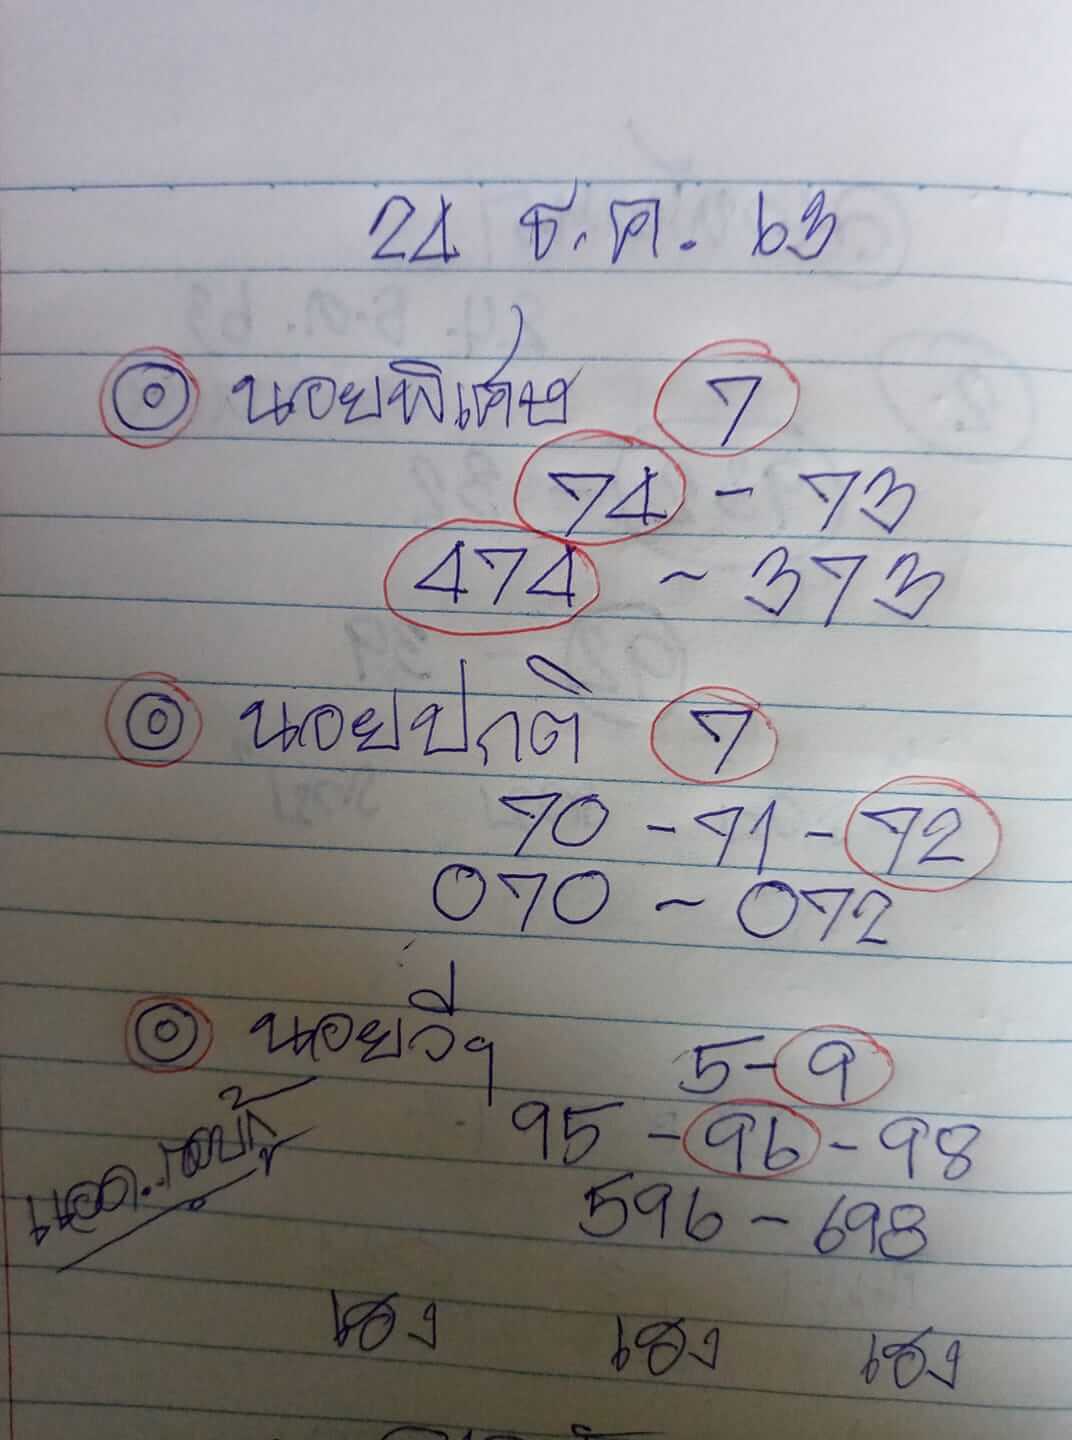 24 ธ.ค. 63
นอยพิเศษ 7
74 - 73
474 ~ 373
นอยปกติ 7
70 - 71 - 72
070 ~ 072
นอยวีๆ 5-9
95 - 96 - 98
596 - 698
เฮง เฮง เฮง